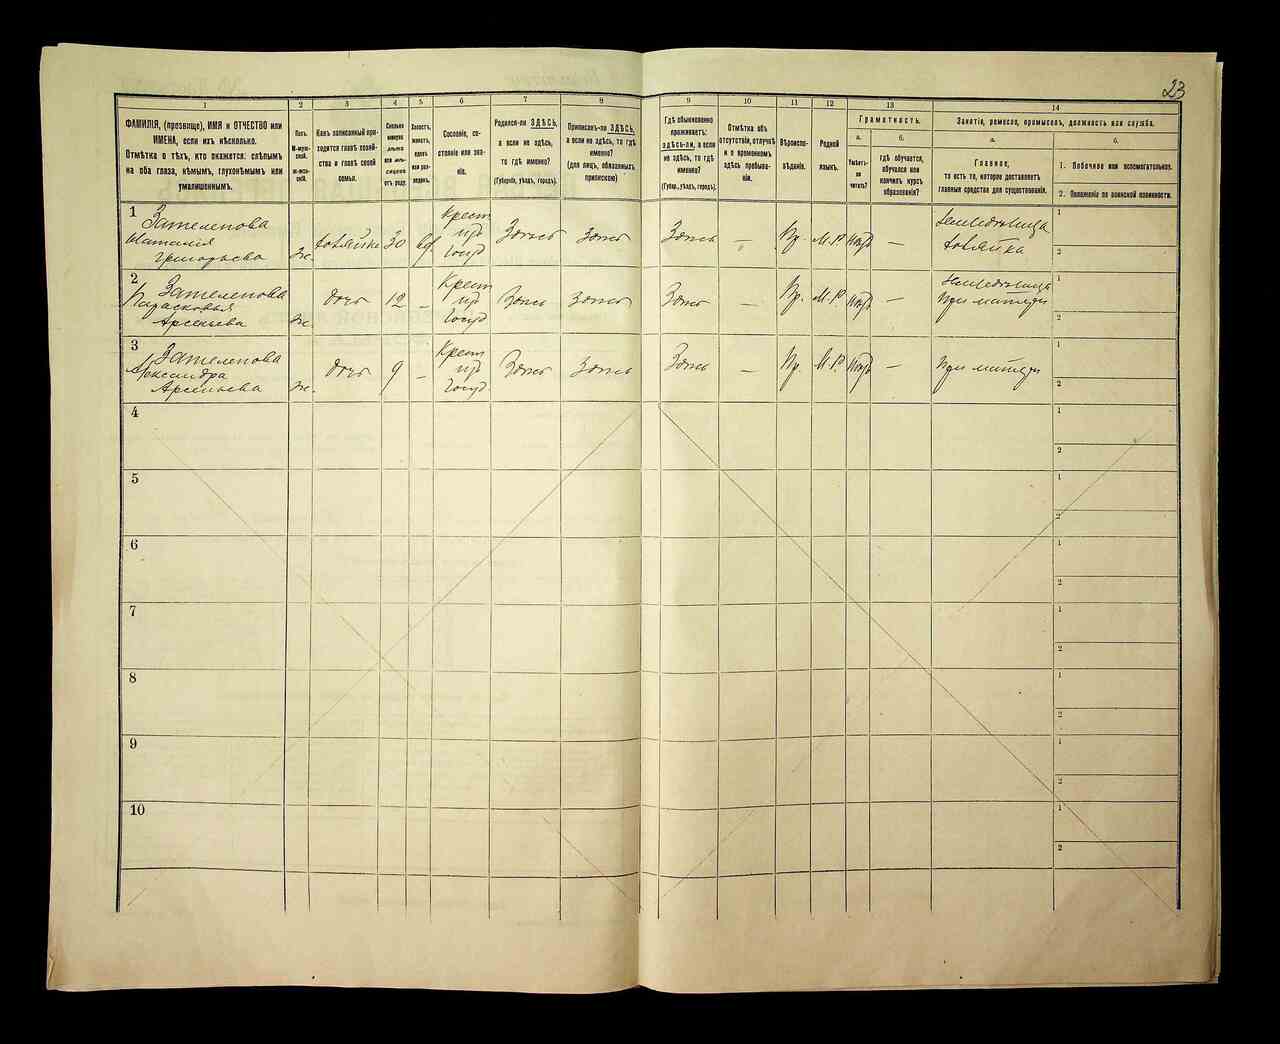 23
1
2
3
4
5
6
7
8
9
10
11
12
13
14
ФАМИЛІЯ, (прозвище), ИМЯ и ОТЧЕСТВО или
ИМЕНА, если ихъ нѣсколько.
Отмѣтка о тѣхъ, кто окажется: слѣпымъ
на оба глаза, нѣмымъ, глухонѣмымъ или
умалишеннымъ.
Полъ.
М-муж-
ской.
Ж-жен-
скій.
Какъ записанный при-
ходится главѣ хозяй-
ства и главѣ своей
семьи.
Сколько
минуло
лѣтъ
или мѣ-
сяцевъ
отъ роду.
Холостъ,
женатъ,
вдовъ
или раз-
веденъ.
Сословіе, со-
стояніе или зва-
ніе.
Родился-ли ЗДѢСЬ,
а если не здѣсь,
то гдѣ именно?
(Губернія, уѣздъ, городъ).
Приписанъ-ли ЗДѢСЬ,
а если не здѣсь, то гдѣ
именно?
(для лицъ, обязанныхъ
припискою)
Гдѣ обыкновенно
проживаетъ:
здѣсь-ли, а если
не здѣсь, то гдѣ
именно?
(Губер., уѣздъ, городъ).
Отмѣтка объ
отсутствіи, отлучкѣ
и о временномъ
здѣсь пребыва-
ніи.
Вѣроиспо-
вѣданіе.
Родной
языкъ.
Грамотность.
а.
Умѣетъ-
ли
читать?
б.
гдѣ обучается,
обучался или
кончилъ курсъ
образованія?
Занятіе, ремесло, промыселъ, должность или служба.
а.
Главное,
то есть то, которое доставляетъ
главныя средства для существованія.
б.
1. Побочное или вспомогательное.
2. Положеніе по воинской повинности.
1
Зателепова
Наталія
Григорьева
ж.
хозяйка
30
вд.
Крест
изъ
госуд
Здѣсь
Здѣсь
Здѣсь
—
Пр.
М.Р.
—
Земледѣлица
хозяйка
1
2
2
Зателепова
Парасковья
Арсеньева
ж.
дочь
12
—
Крест
изъ
госуд
Здѣсь
Здѣсь
Здѣсь
—
Пр.
М.Р.
—
Земледѣлица
При матери
1
2
3
Зателепова
Александра
Арсеньева
ж.
дочь
9
—
Крест
изъ
госуд
Здѣсь
Здѣсь
Здѣсь
—
Пр.
М.Р.
—
При матери
1
2
4
1
2
5
1
2
6
1
2
7
1
2
8
1
2
9
1
2
10
1
2